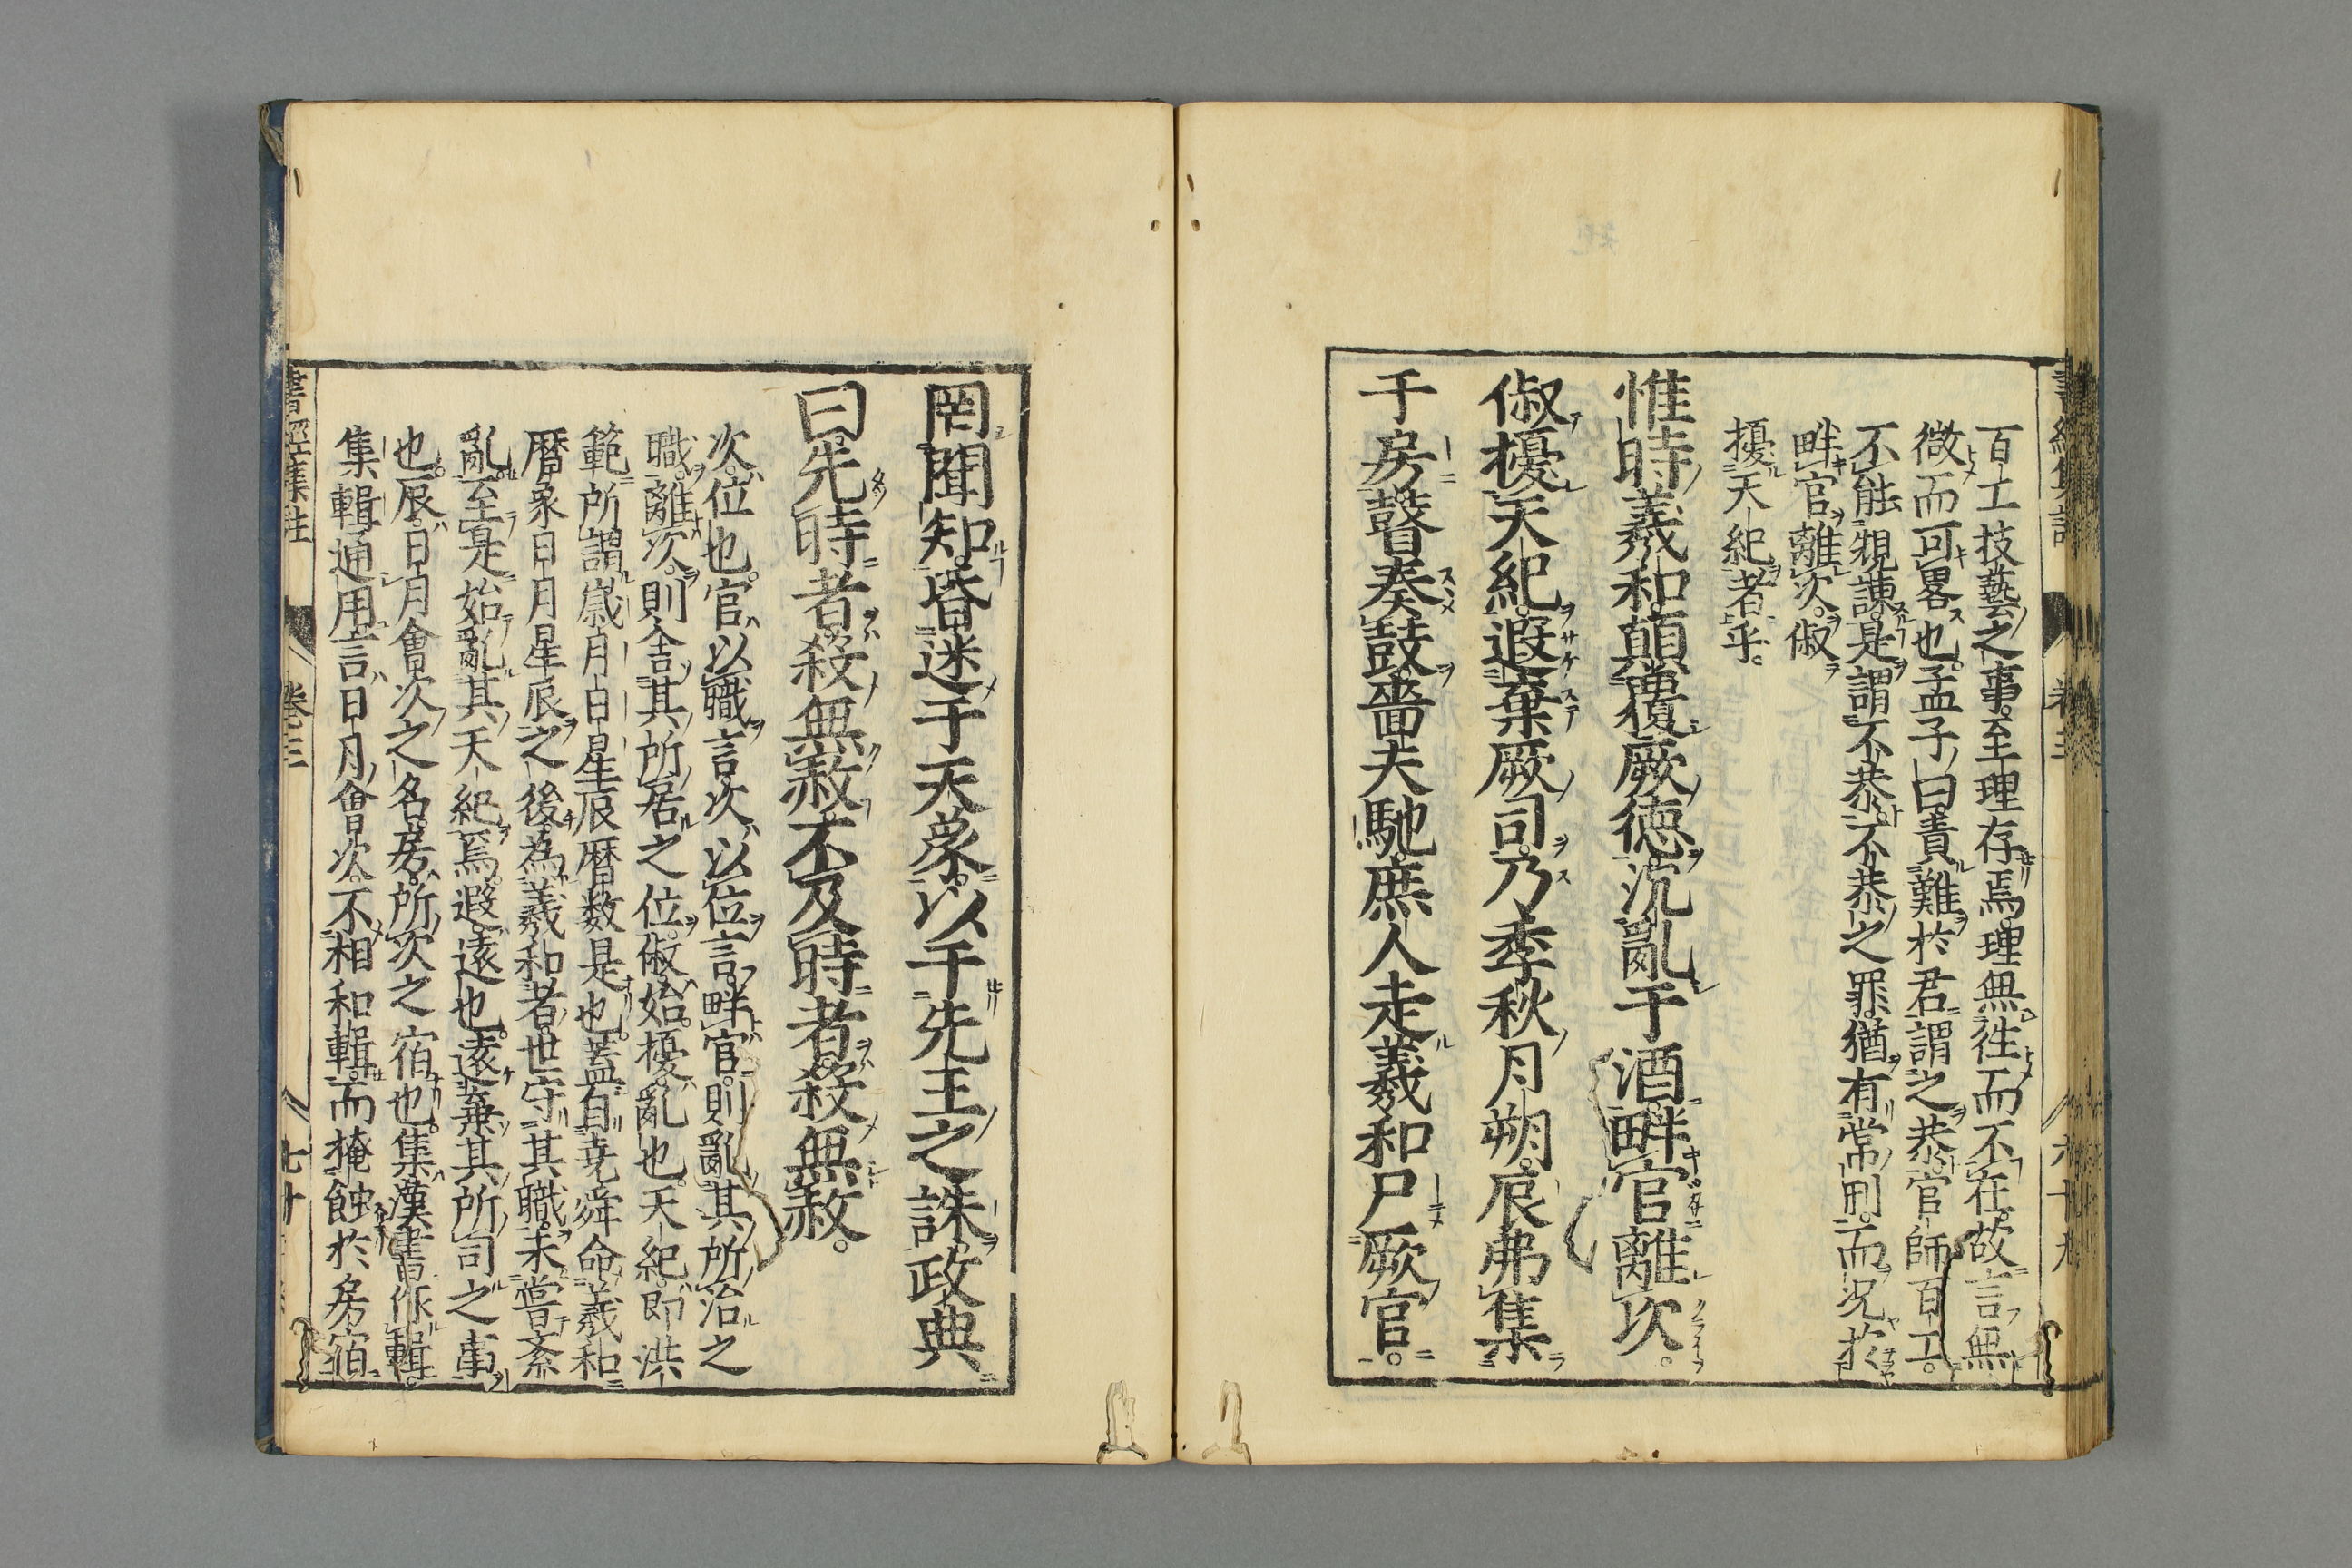 百工技藝之事。至理存焉。理無徃而不在。故言無
微而可畧也。孟子曰責難於君謂之恭。官師百工。
不能規諌。是謂不恭。不恭之罪。猶有常刑。而况於
畔官離次。俶
擾天紀者乎。
惟時羲和顛覆厥徳。沉亂于酒畔官離次。
俶擾天紀。遐棄厥司。乃季秋月朔。辰弗集
于房。瞽奏鼓。嗇夫馳。庶人走。羲和尸厥官。
罔聞知。昏迷于天象。以干先王之誅。政典
曰。先時者。殺無赦。不及時者。殺無赦。
次。位也。官。以職言。次。以位言。畔官。則亂其所治之
職。離次。則舍其所居之位。俶。始。擾。亂也。天紀。即洪
範所謂歳月日星辰暦数是也。蓋自堯舜命羲和
暦象日月星辰之後。為羲和者。世守其職。未嘗紊
亂。至是始亂其天紀焉。遐。遠也。遠棄其所司之事
也。辰。日月會次之名。房。所次之宿也。集。漢書作輯。
集輯通用。言日月會次。不相和輯。而掩蝕於房宿
書經集註 巻三 七十